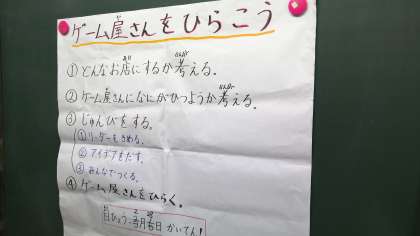 ゲーム屋さんをひらこう
①どんなお店にするか考える。
②ゲーム屋さんになにがひつようか考える。
③じゅんびをする。
①リーダーをきめる。
②アイデアをだす。
③みんなでつくる。
④ゲーム屋さんをひらく。
目ひょう
かいてん!